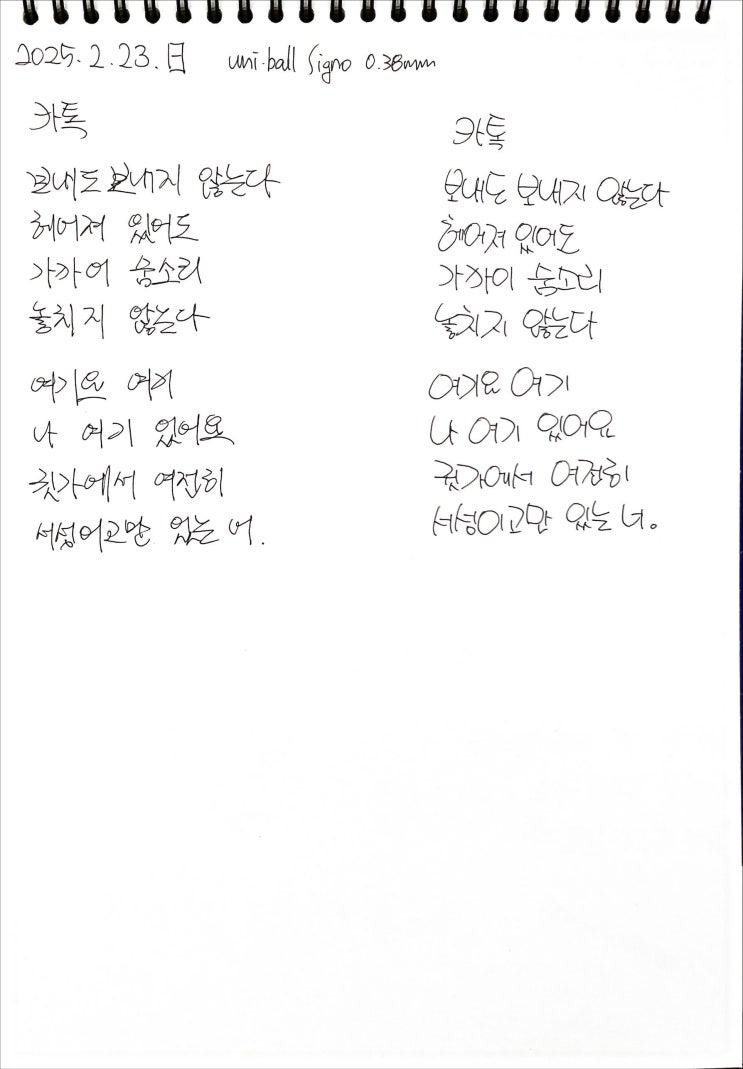 2025.2.23.日 uni-ball Signo 0.38mm
카톡
보내도 보내지 않는다
헤어져 있어도
가까이 숨소리
놓치지 않는다
여기요 여기
나 여기 있어요
귓가에서 여전히
서성이고만 있는 너.
카톡
보내도 보내지 않는다
헤어져 있어도
가까이 숨소리
놓치지 않는다
여기요 여기
나 여기 있어요
귓가에서 여전히
서성이고만 있는 너。